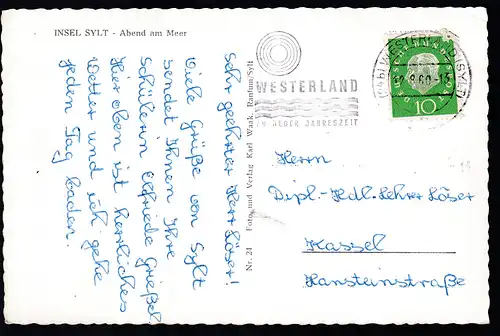 INSEL SYLT - Abend am Meer
Sehr geehrter Herr Löser!
Viele Grüße von Sylt
sendet Ihnen Ihre
Schülerin Elfriede Grießel.
Hier oben ist herrliches
Wetter und ich gehe
jeden Tag baden.
Nr. 24 Foto und Verlag Karl Waak, Rantum/Sylt
WESTERLAND
ZU JEDER JAHRESZEIT
WESTERLAND (SYLT)
10
Herrn
Dipl.-Hdl.-Lehrer Löser
Kassel
Hansteinstraße